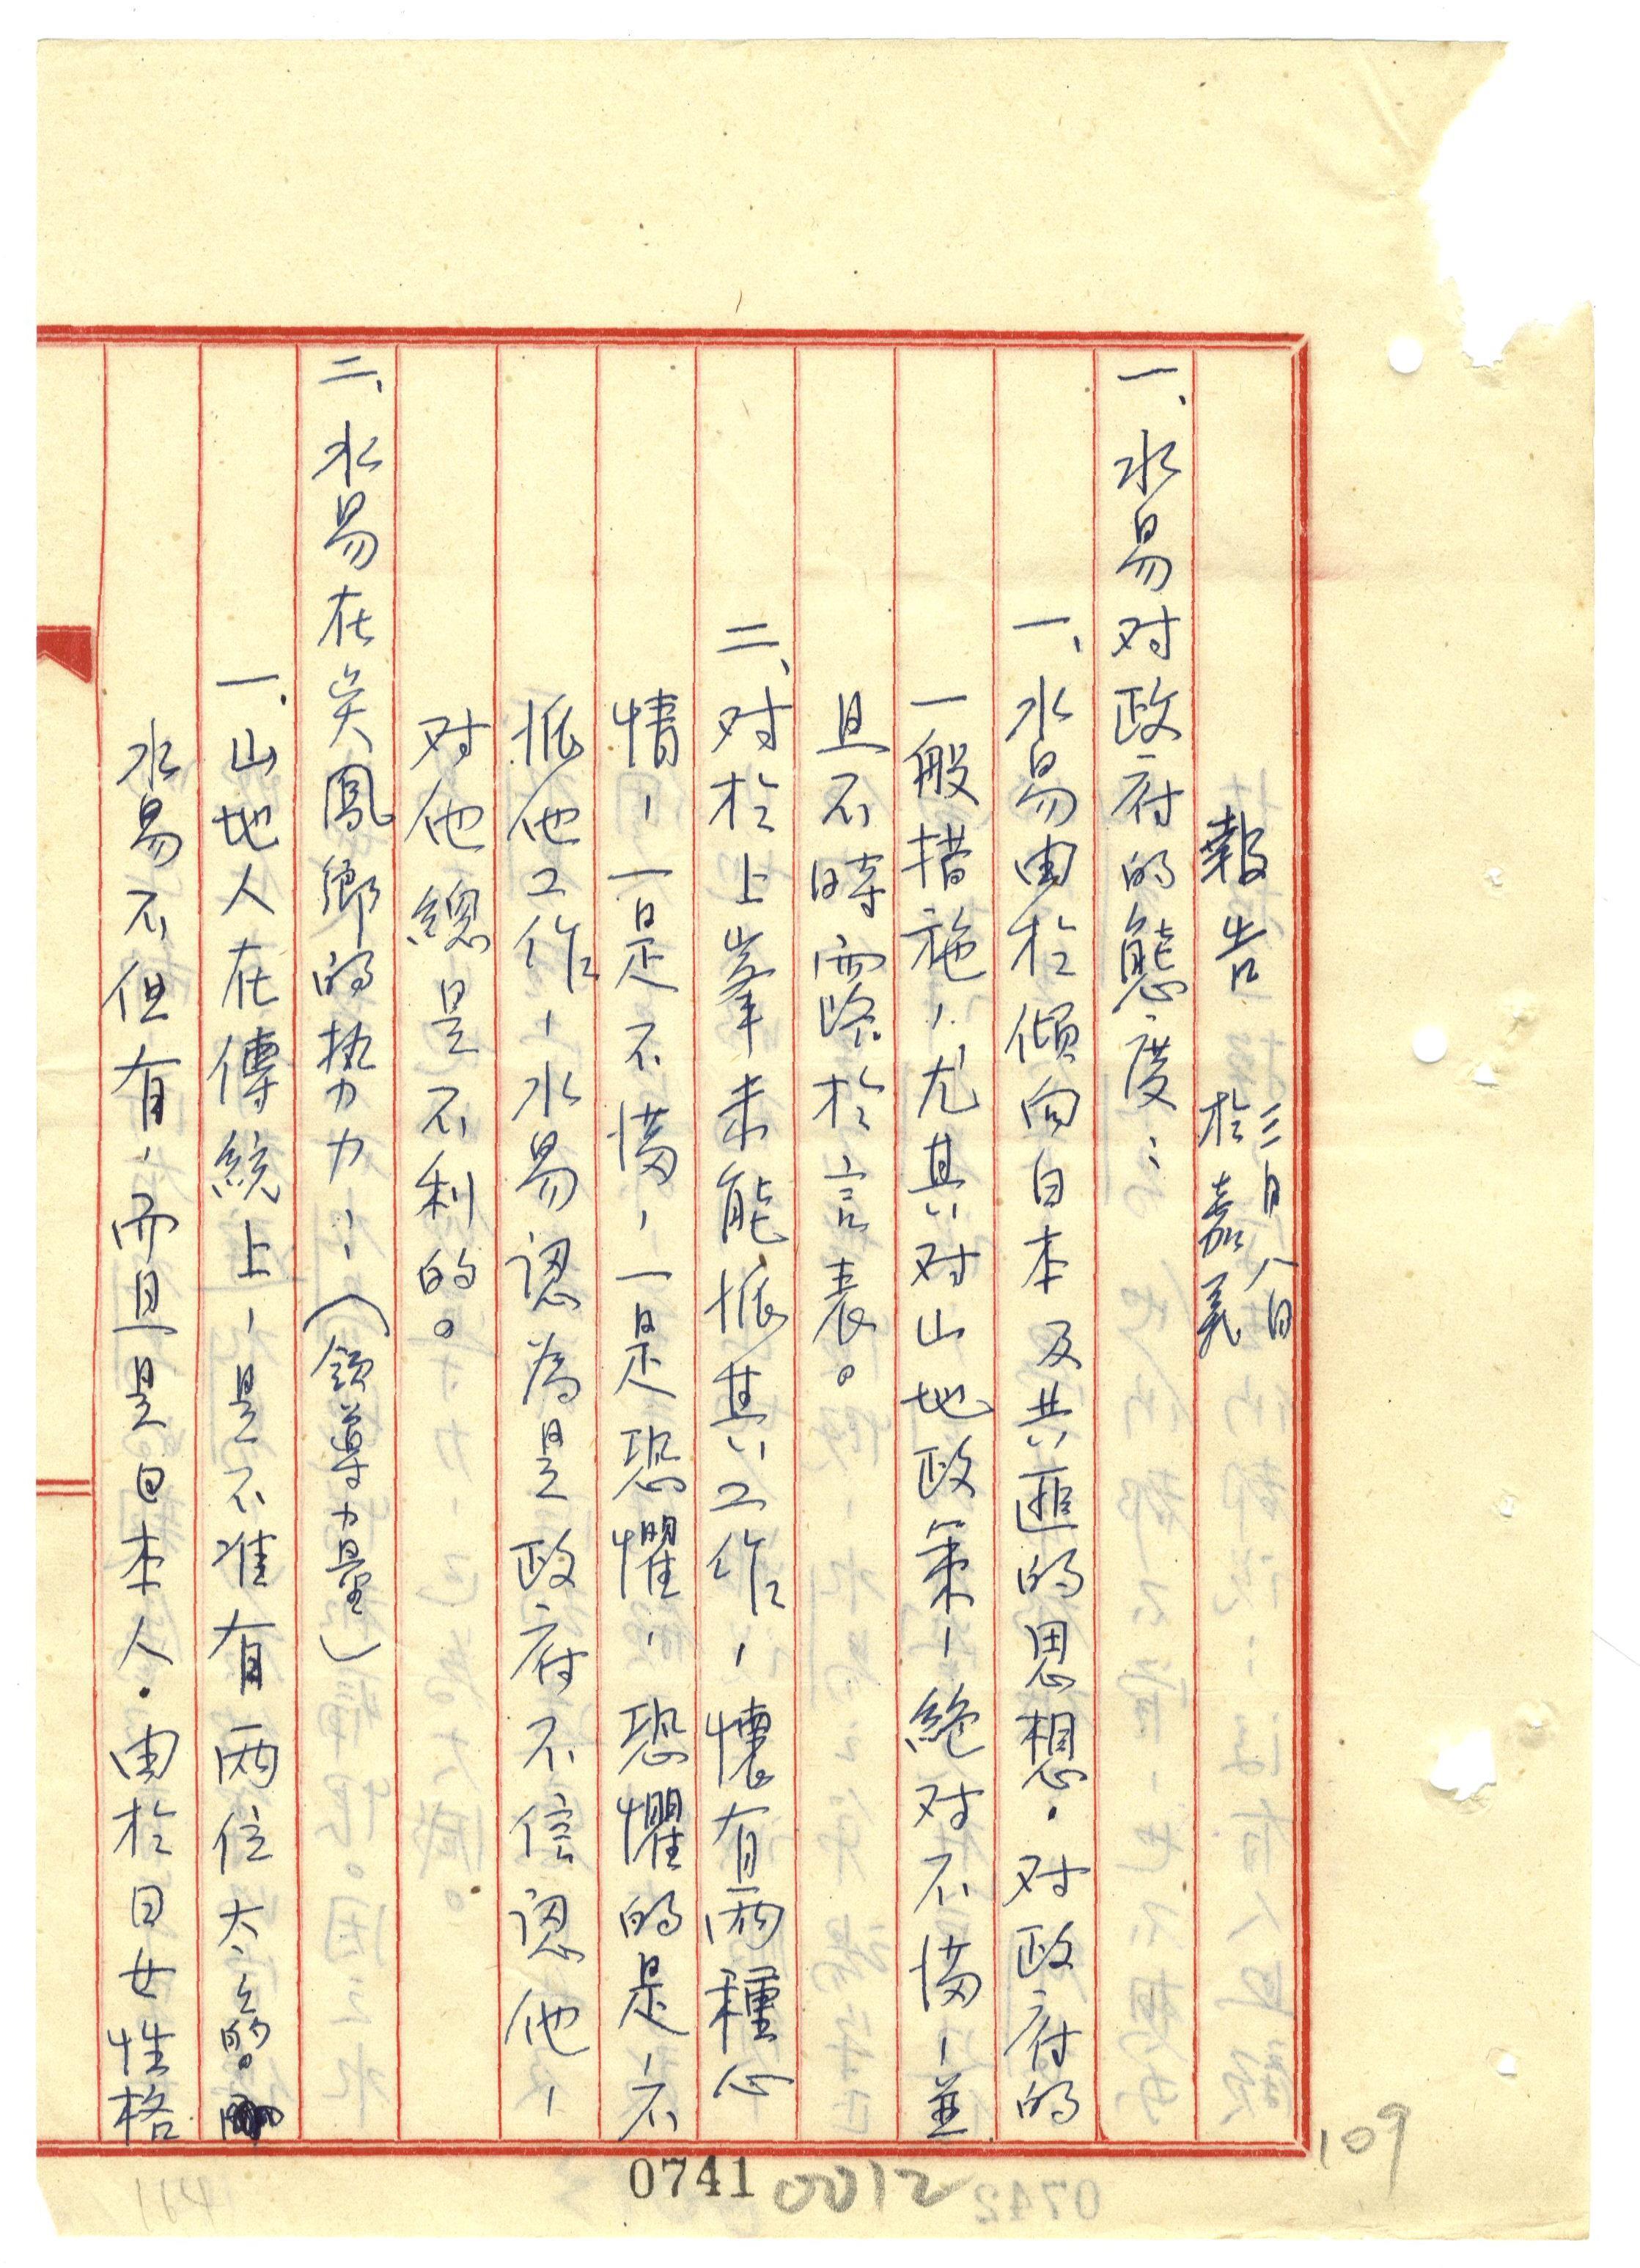 報告 三月八日
於嘉義
一、水易对政府的態度：
一、水易由於傾向日本及共匪的思想．对政府的
一般措施，尤其对山地政策，絶对不満，並
且不時露於言表。
二、对於上峯未能派其工作，懷有兩種心
情，一是不満，一是恐懼，恐懼的是，不
派他工作，水易認為是政府不信認他，
对他總是不利的。
二、水易在吳鳳鄉的势力：（領導力量）
一．山地人在傳統上，是不准有两位太太的。
水易不但有，而且是日本人．由於日女性格
0741
0012
109